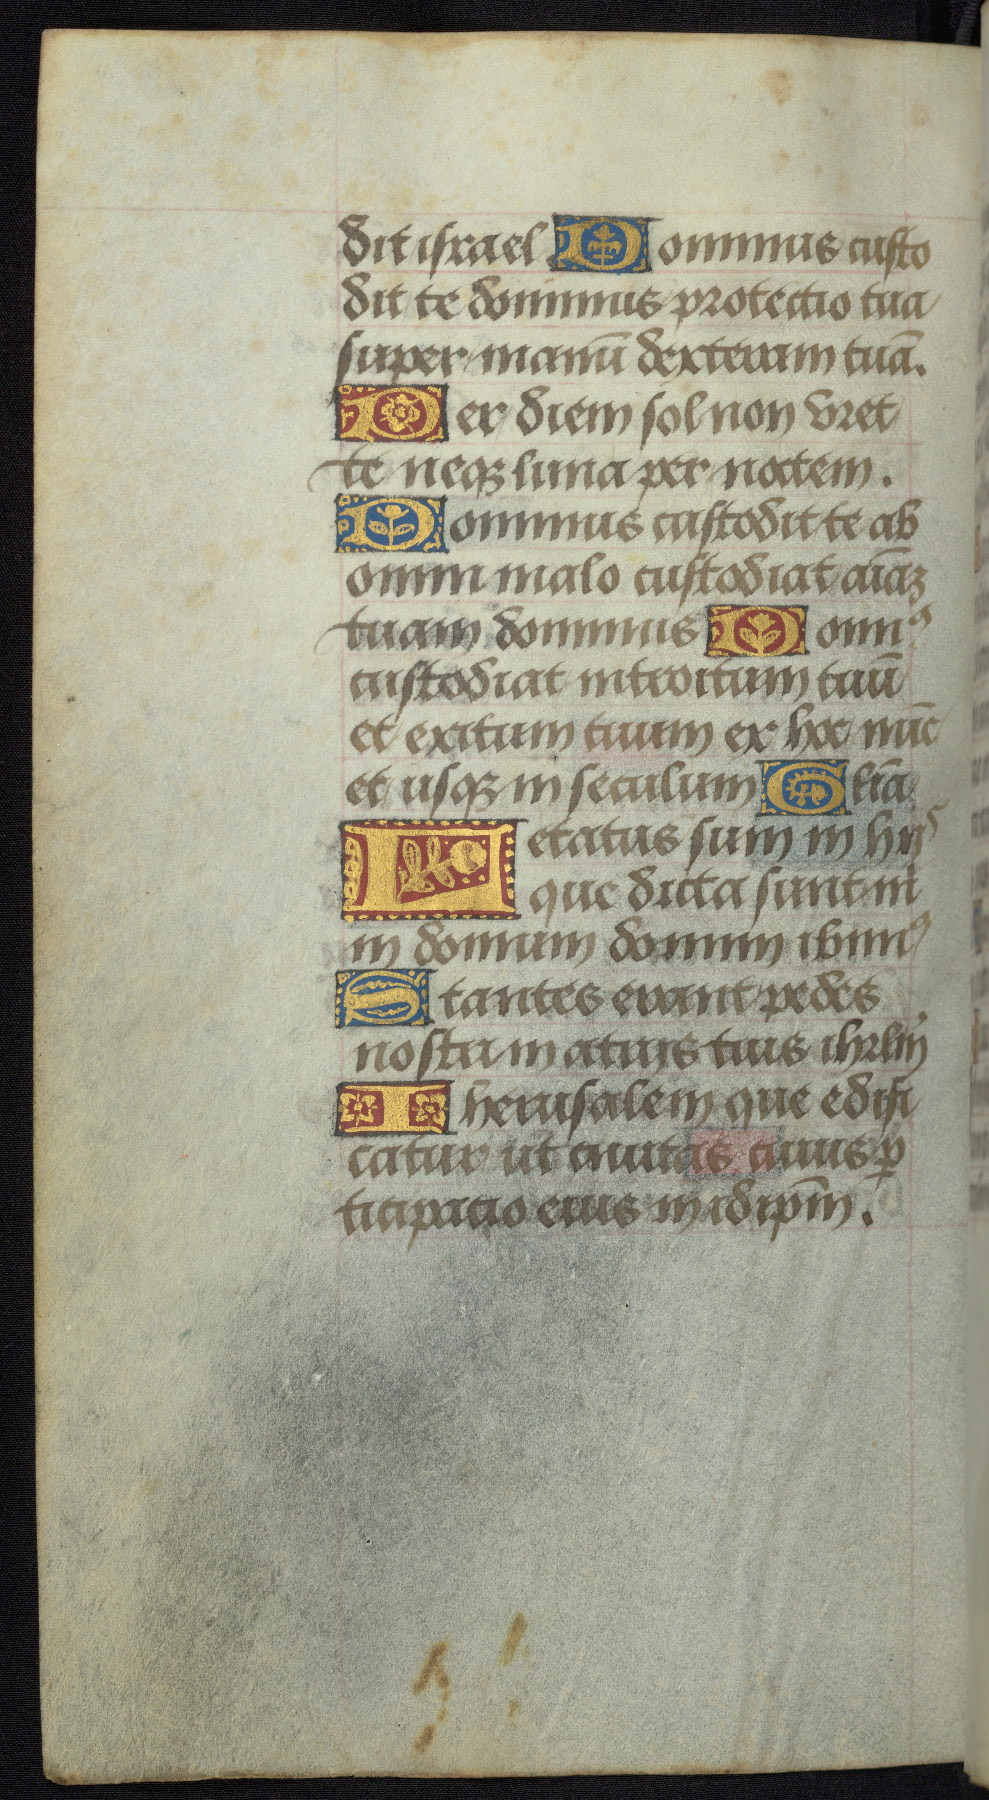 dit israel Dominus custo
dit te dominus protectio tua
super manū dexteram tuā.
Per diem sol non vret
te neqꝫ luna per noctem.
Dominus custodit te ab
omni malo custodiat aīaꝫ
tuam dominus Domīꝰ
custodiat introitum tuū
et exitum tuum ex hoc nūc
et usqꝫ in seculum Glīa
Letatus sum in hijs
que dicta sunt m
in domum domini ibimꝰ
Stantes erant pedes
nostri in atrijs tuis ihrlm̄
Iherusalem que edifi
catur ut ciuitas cuius ꝑ
ticipatio eius in idip̄m.